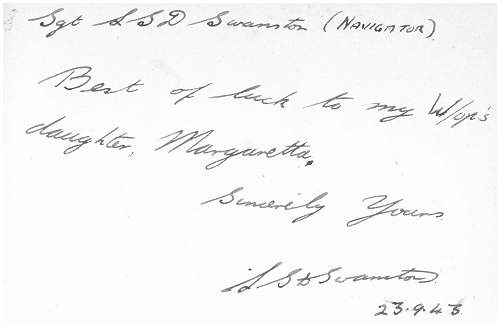 Sgt L S D Swanston (NAVIGATOR).
Best of luck to my W/op's
daughter, Margaretta.
Sincerely Yours
L S D Swanston.
23.9.43.